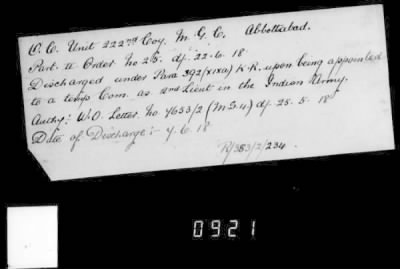 O.C. Unit 222nd Coy. M.G.C. Abbottabad.
Part. II Order No 25. dj. 22.6.18.
Discharged under Para 392(XIXa) K.R. upon being appointed
to a temp Com. as 2nd Lieut in the Indian Army.
Authy: W.O. Letter. No 7633/2 (M.S.4) dj. 25.5.18
Date of Discharge:- 7.6.18
R/383/2/234.
0921